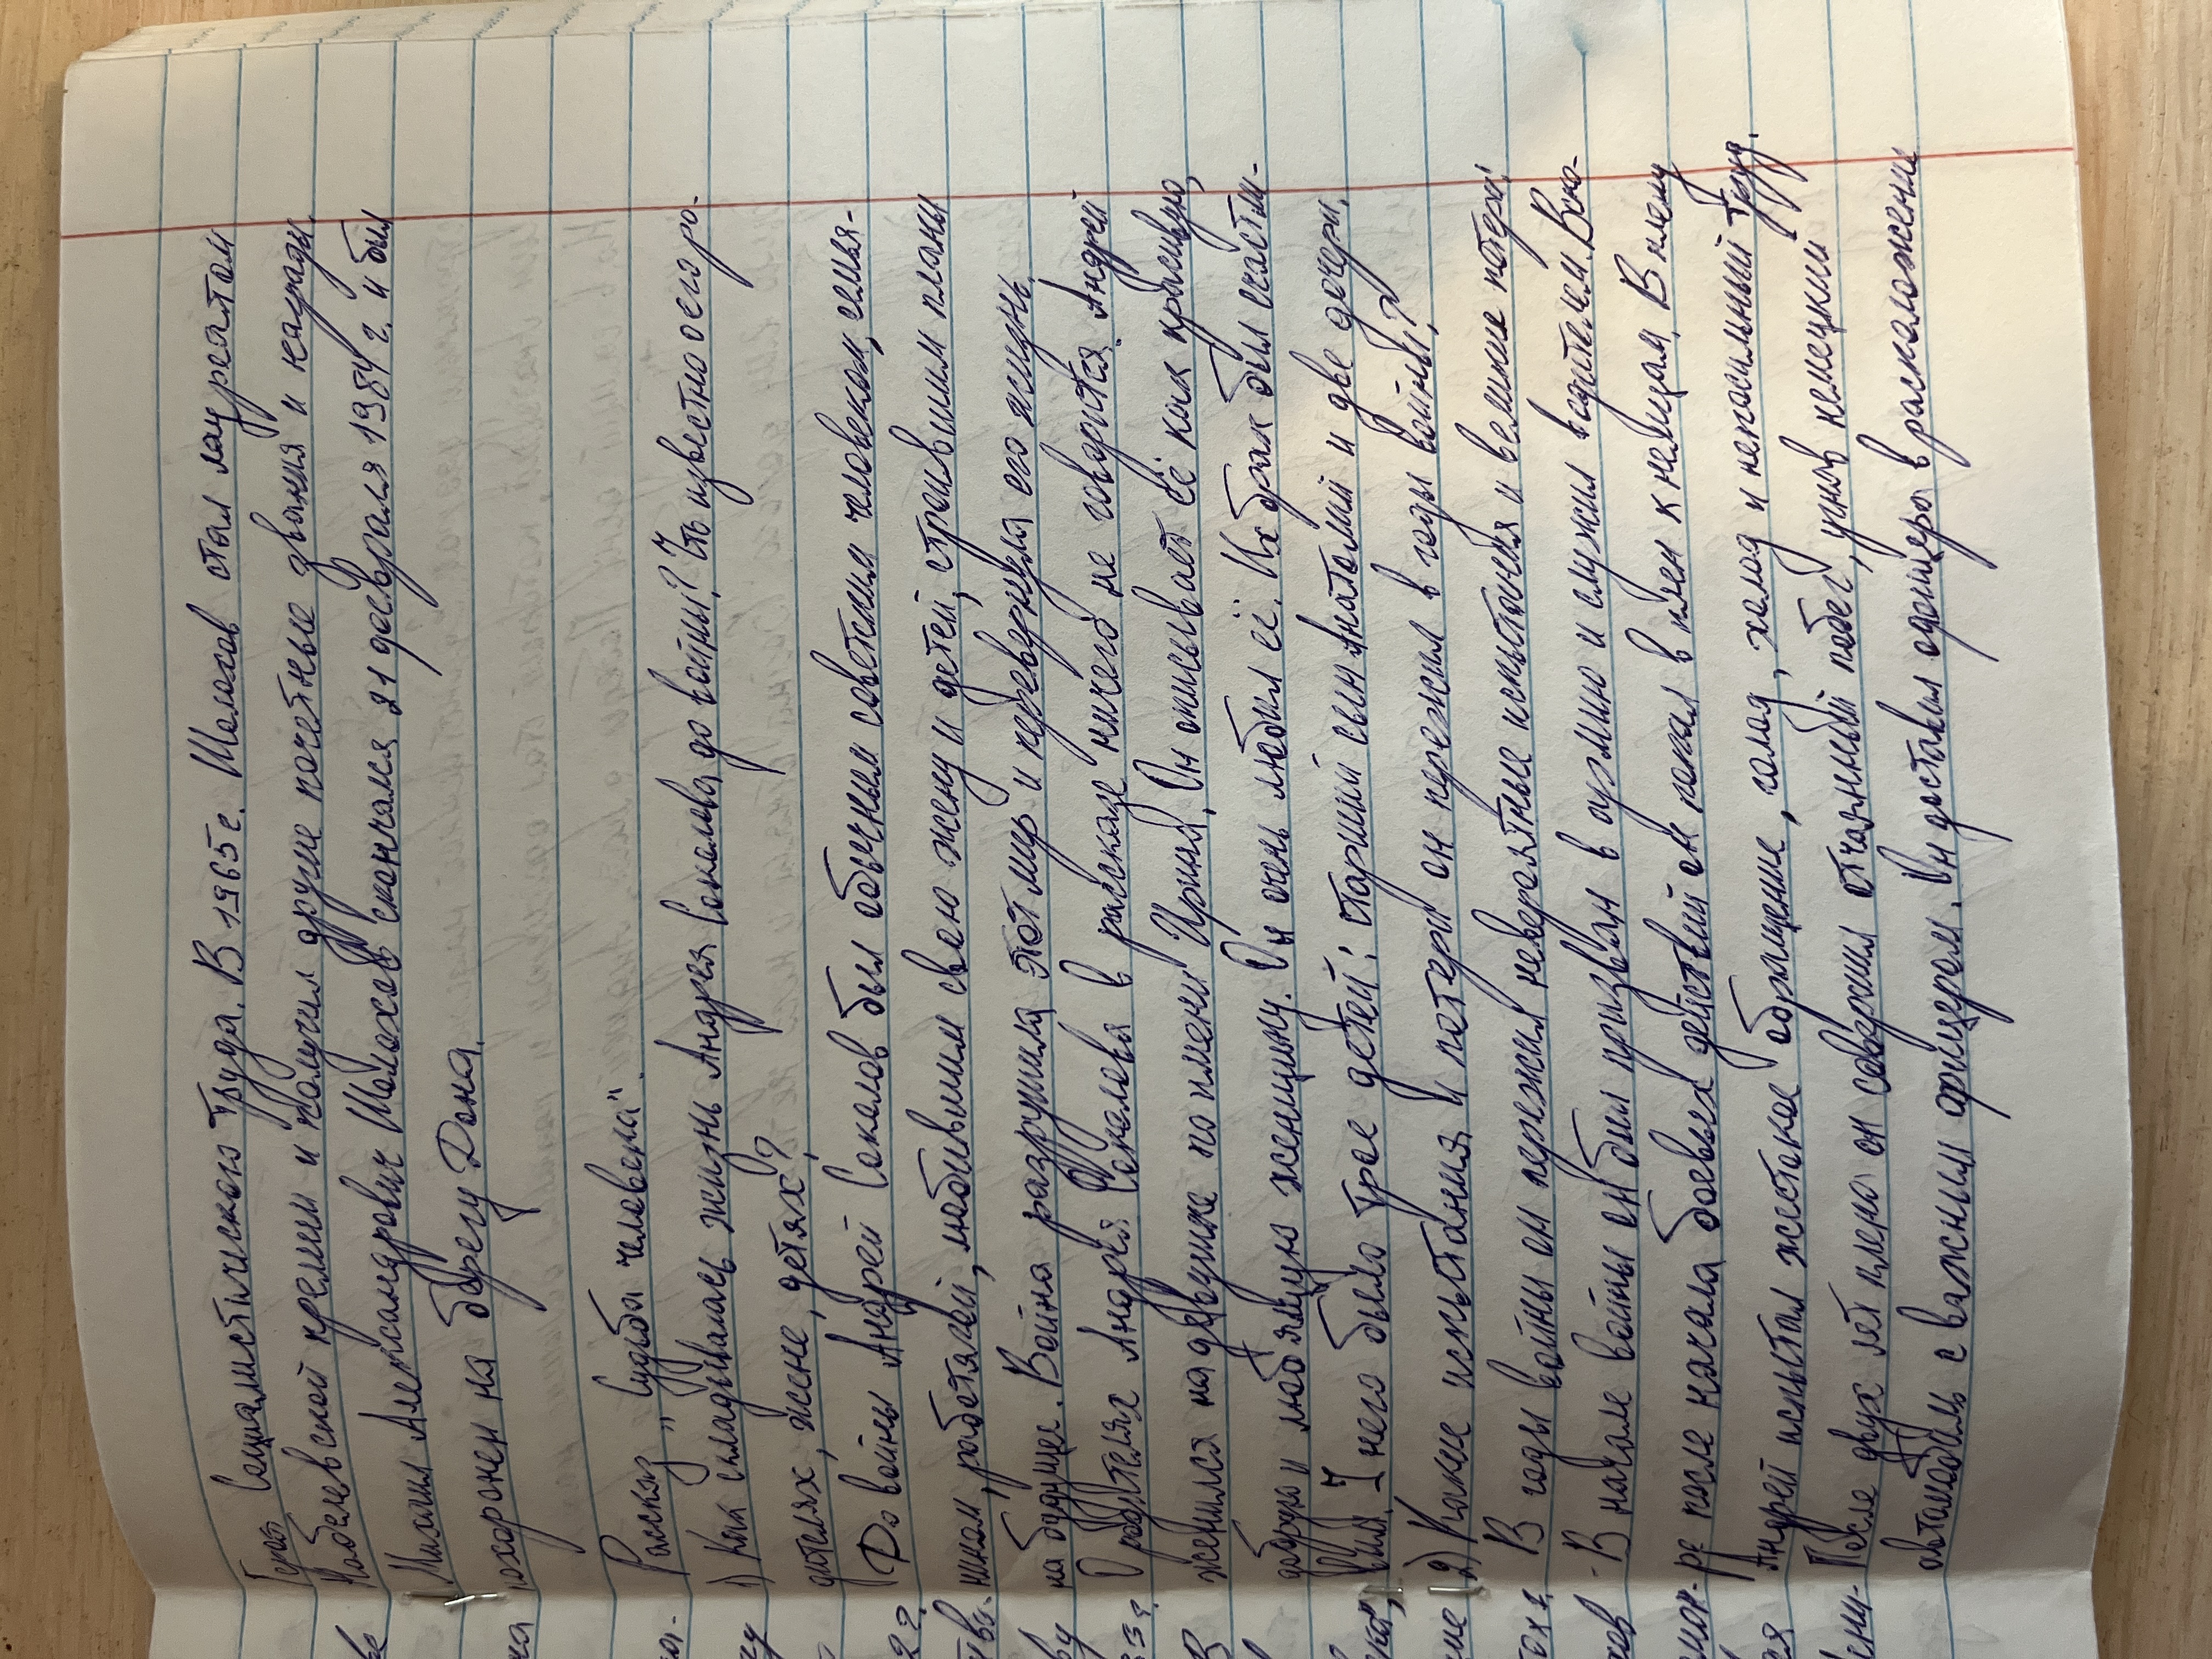 Герой Социалистического Труда. В 1965 г. Шолохов стал лауреатом
Нобелевской премии и получил другие почетные звания и награды.
Михаил Александрович Шолохов скончался 21 февраля 1984 г. и был
похоронен на берегу Дона.
Рассказ „Судьба человека".
1) Как складывалась жизнь Андрея Соколова до войны? Что известно о его ро-
дителях, жене, детях?
До войны Андрей Соколов был обычным советским человеком, семья-
нином, работягой, любившим свою жену и детей, строившим планы
на будущее. Война разрушила этот мир и перевернула его жизнь.
О родителях Андрея Соколова в рассказе ничего не говорится. Андрей
женился на девушке по имени Ирина. Он описывает её как красивую,
добрую и любящую женщину. Он очень любил её. Их брак был счастли-
вым. У него было трое детей: старший сын Анатолий и две дочери.
2) Какие испытания и потери он пережил в годы войны?
В годы войны он пережил невероятные испытания и великие потери:
- В начале войны он был призван в армию и служил водителем. Вско-
ре после начала боевых действий он попал в плен к немцам. В плену
Андрей испытал жестокое обращение, голод, холод и непосильный труд.
После двух лет плена он совершил отчаянный побег, угнав немецкий
автомобиль с важным офицером. Он доставил офицера в расположение